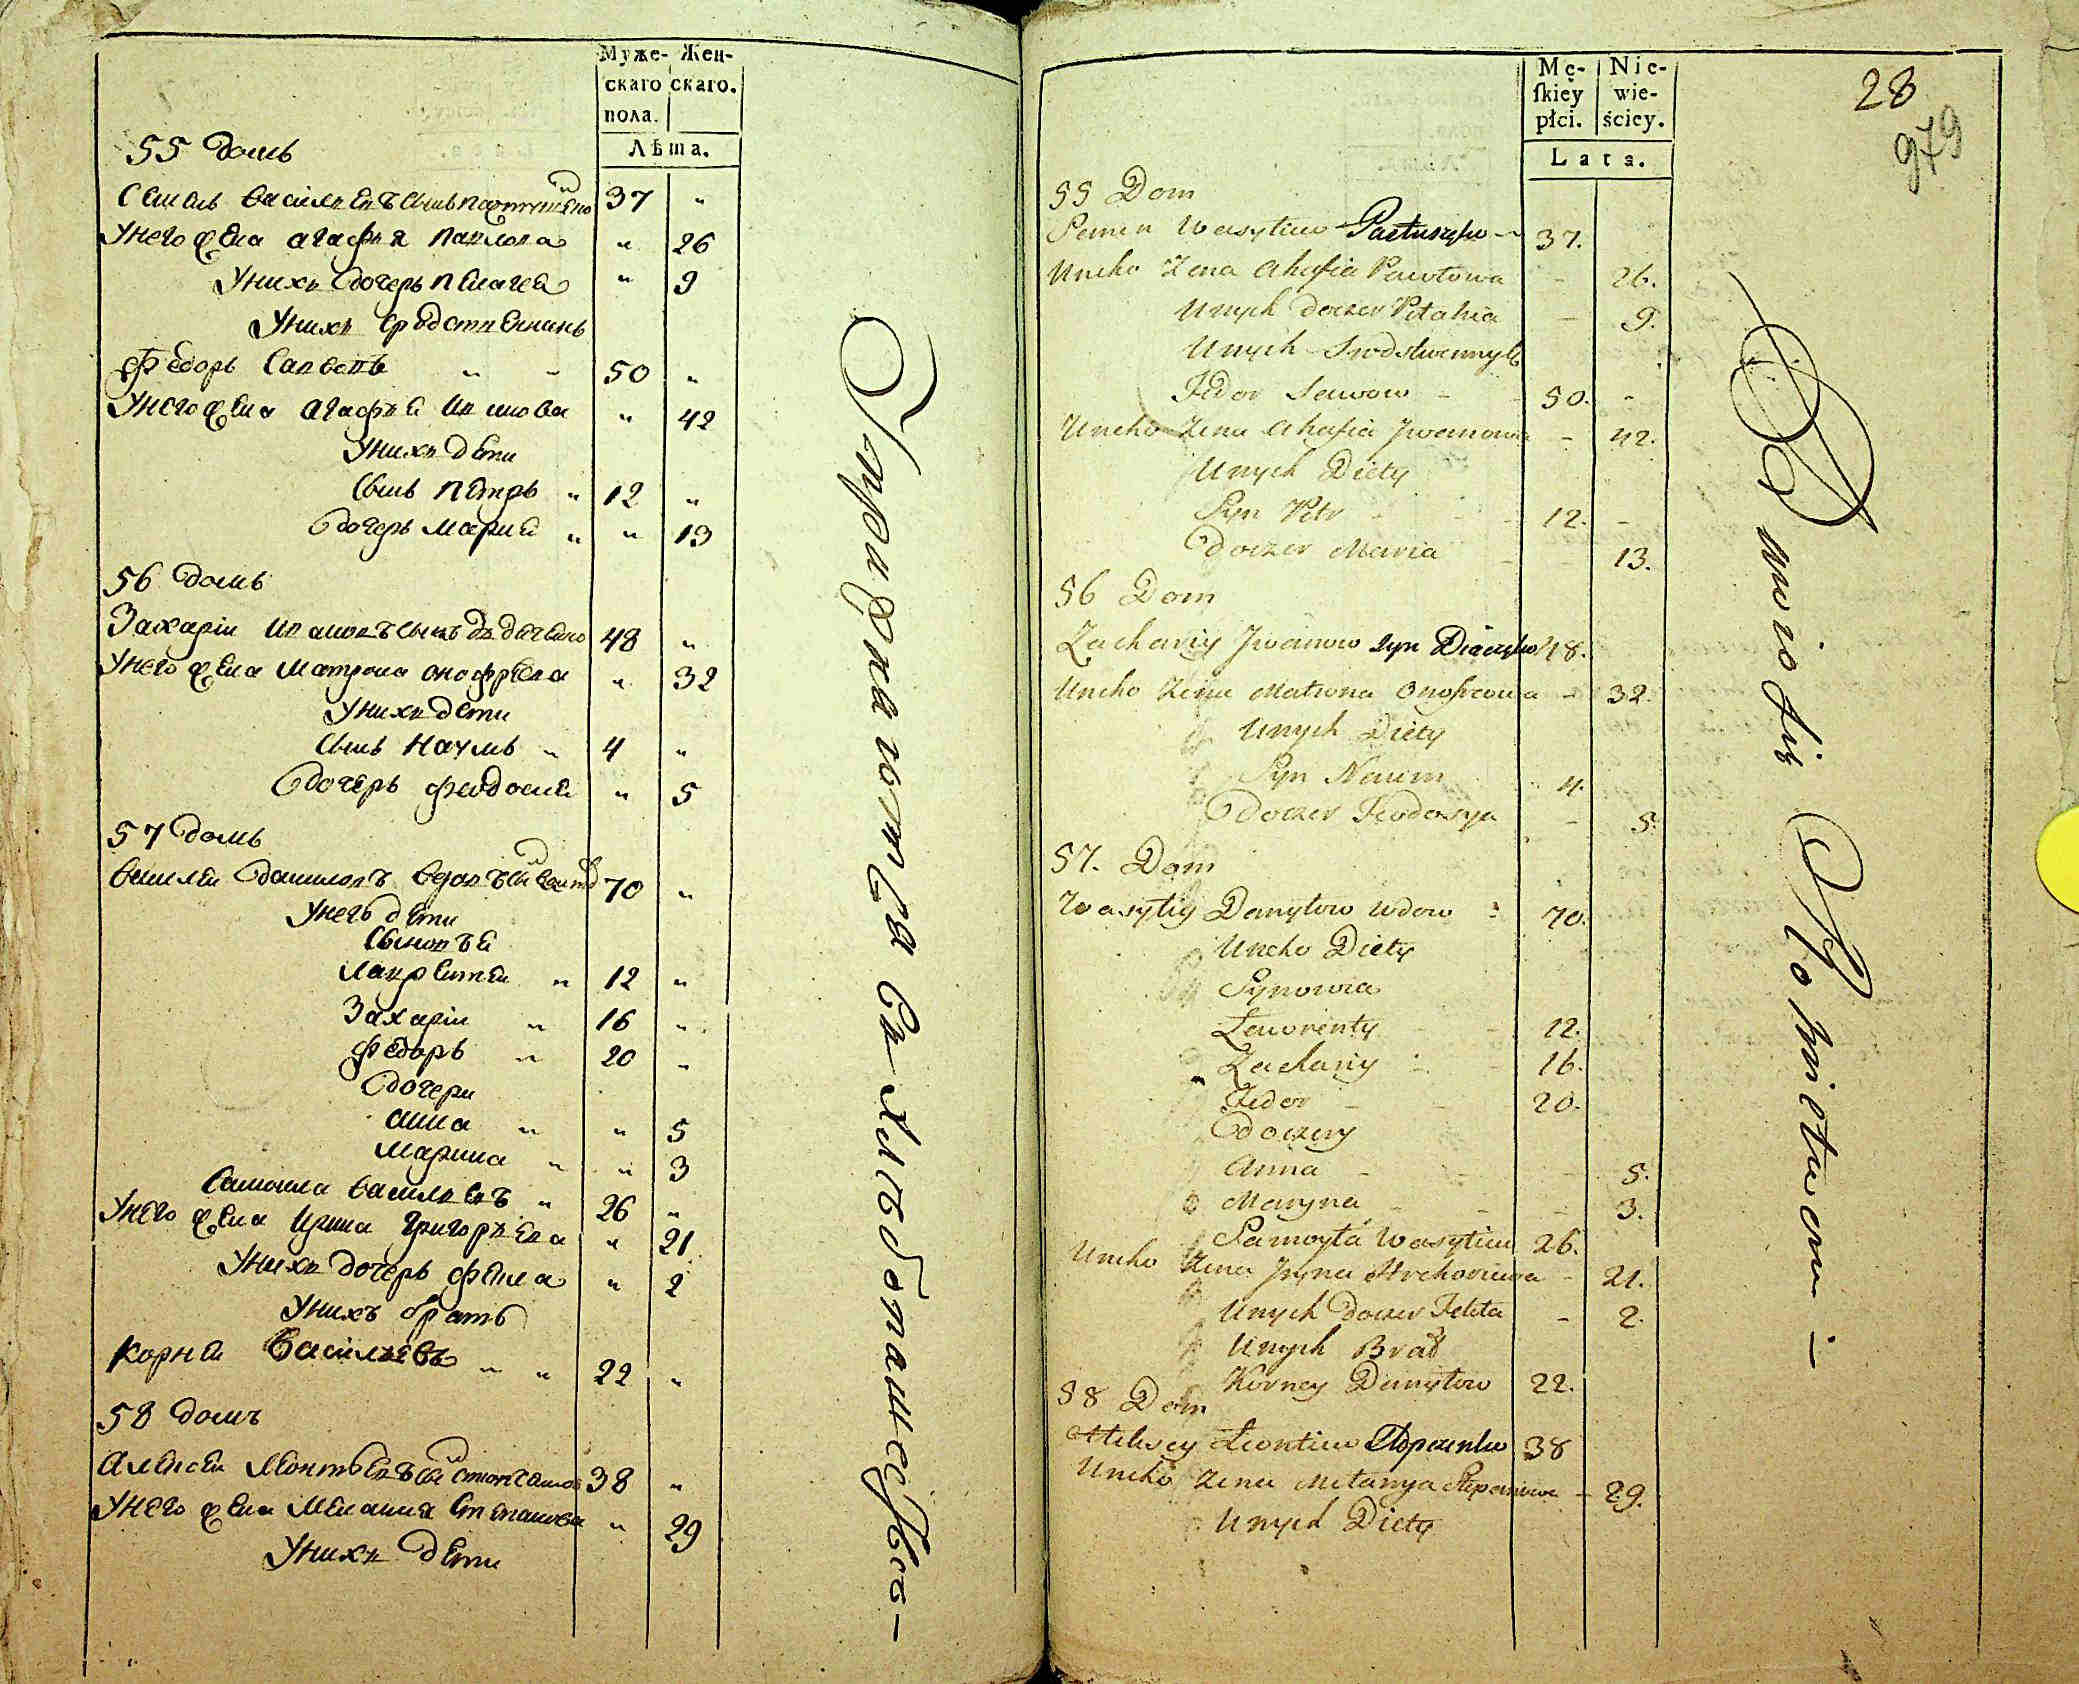 Муже- Жен-
скаго скаго.
пола.
Лѣта.
55 домъ
Семенъ Василиевъ сынъ 37 "
Унего жена Агафия Павлова " 26
Унихъ дочерь Пелагея " 9
Унихъ сродственникъ
Федоръ Саввовъ " " 50 "
Унего жена Агафия Иванова " 42
Унихъ дети
Сынъ Петръ " 12 "
Дочерь Мария " " 13
56 домъ
Захарій Ивановъ сынъ 48 "
Унего жена Матрона Онофриева " 32
Унихъ дети
Сынъ Наумъ " 4 "
Дочерь Феодосия " 5
57 домъ
Василий Даниловъ вдовъ 70 "
Унего дети
Сыновѣя
Лаврентей " 12 "
Захарій " 16 "
Федоръ " 20 "
Дочери
Анна " " 5
Марина " " 3
Самоила Василиевъ " 26 "
Унего жена Ирина Григориева " 21
Унихъ дочерь Фекла " 2
Унихъ братъ
Корней Василиевъ " " 22 "
58 домъ
Алексей Леонтьевъ 38 "
Унего жена Мелания Степанова " 29
Унихъ дети
Mę- Nie-
ſkiey wie-
płci. ściey.
Lata.
28
979
55 Dom
Semen Wasyliew Pastuszko - 37.
Uneho Żena Ahafia Pawłowa - 26.
Unych Doczer Pełahia - 9.
Unych Srodstwennyk
Fedor Sawow - 50. -
Uneho Żena Ahafia Jwanowa - 42.
Unych Diety
Syn Petr - 12. -
Doczer Maria 13.
56 Dom
Zachariy Jwanow syn Diaczko 48.
Uneho Żena Matrona Onofreowa - 32.
Unych Diety
Syn Naum 4.
Doczer Feodosya - 5.
57. Dom
Wasyliy Danyłow wdow 70.
Uneho Diety
Synowia
Lawrenty - 12.
Zachariy - 16.
Fedor - 20.
Doczery
Anna - 5.
Maryna - 3.
Samoyła Wasyliew 26.
Uneho Żena Jryna Hrehoriewa - 21.
Unych Doczer Fekła - 2.
Unych Brat
Korney Danyłow 22.
58 Dom
Alexey Leontiew 38
Uneho Żena Mełanya Stepanowa - 29.
Unych Diety